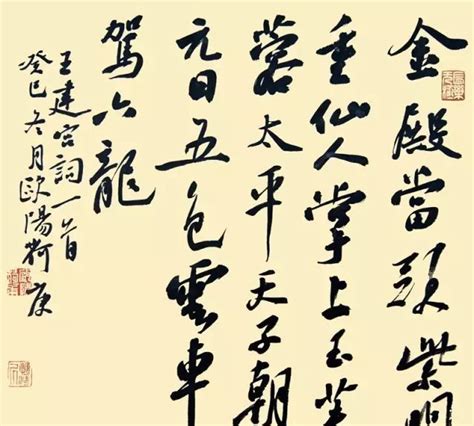 金殿當頭紫閣
重仙人掌上玉芙
蓉太平天子朝
元日五色雲車
駕六龍
王建宫詞一首
癸巳冬月歐陽荷庚